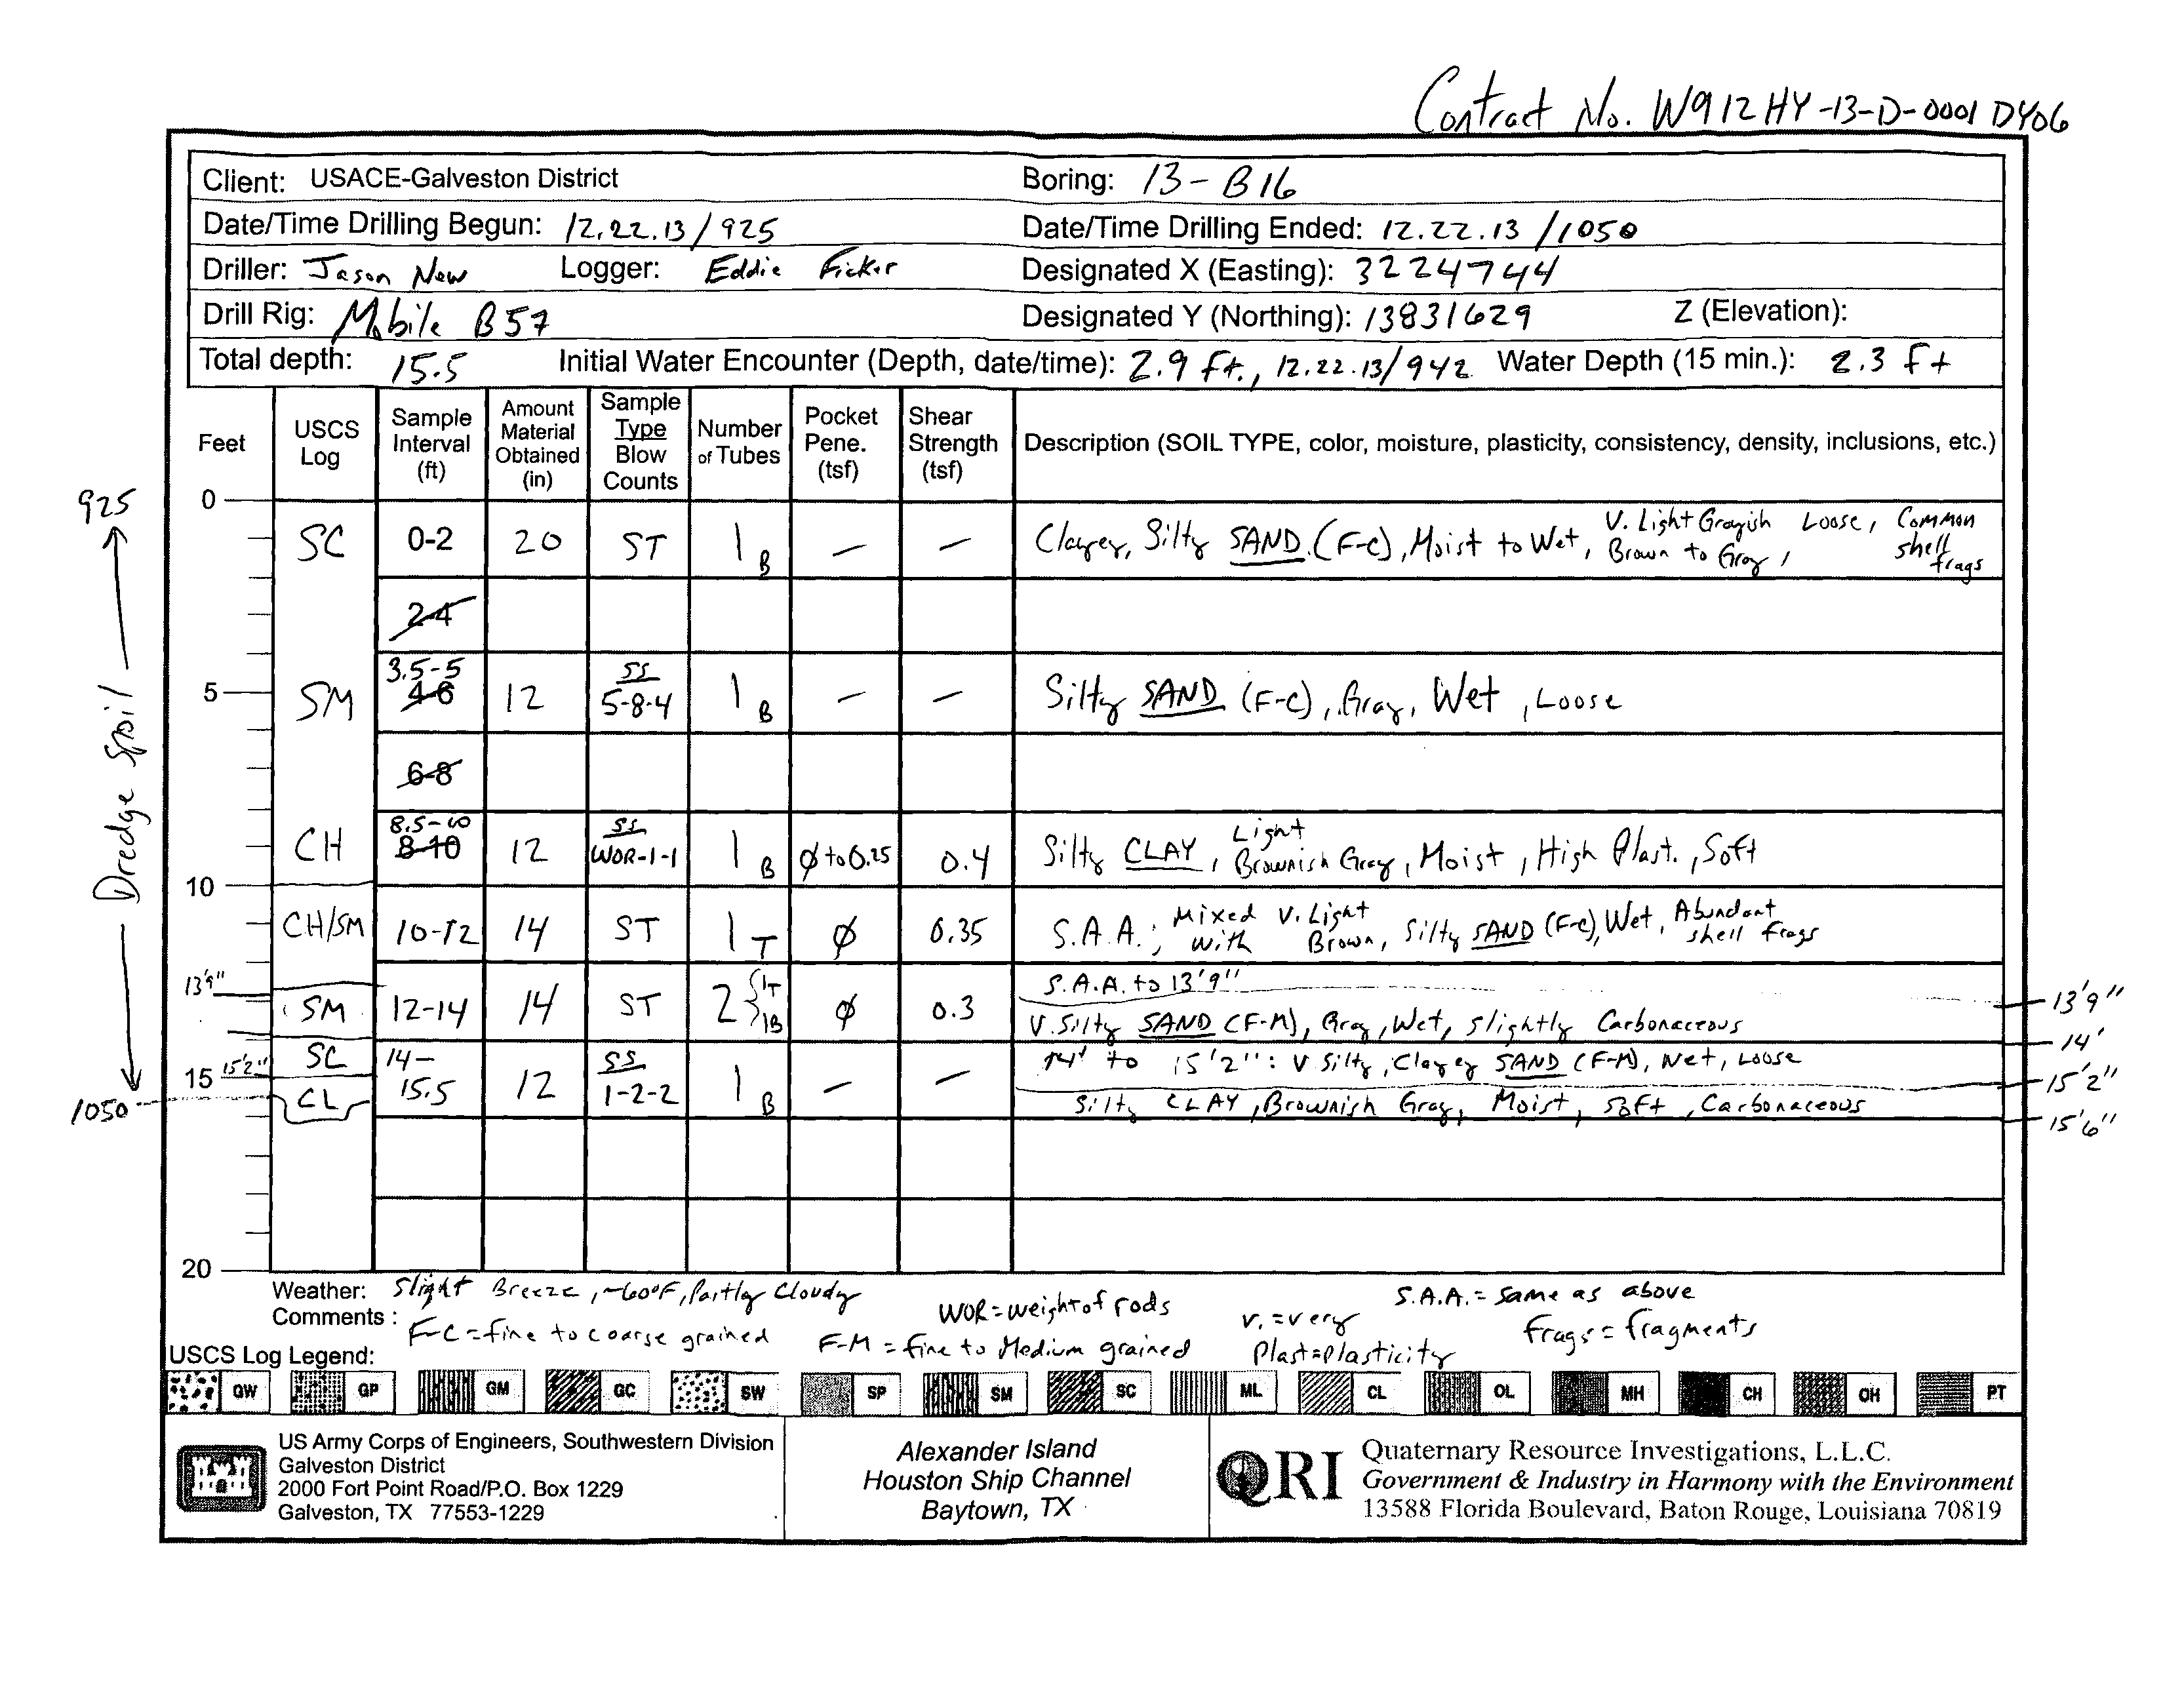 Contract No. W912HY-13-D-0001 DY06
Client: USACE-Galveston District Boring: 13-B16
Date/Time Drilling Begun: 12.22.13/925 Date/Time Drilling Ended: 12.22.13/1050
Driller: Jason New Logger: Eddie Ficker Designated X (Easting): 3224744
Drill Rig: Mobile B57 Designated Y (Northing): 13831629 Z (Elevation):
Total depth: 15.5 Initial Water Encounter (Depth, date/time): 2.9 ft., 12.22.13/942 Water Depth (15 min.): 2.3 ft
Feet USCS Log Sample Interval (ft) Amount Material Obtained (in) Sample Type Blow Counts Number of Tubes Pocket Pene. (tsf) Shear Strength (tsf) Description (SOIL TYPE, color, moisture, plasticity, consistency, density, inclusions, etc.)
925
Dredge Spoil
0
SC 0-2 20 ST 1 B — — Clayey, Silty SAND (F-C), Moist to Wet, V. Light Grayish Brown to Gray, Loose, Common shell frags
2-4
5 SM 3.5-5 4-6 12 SS 5-8-4 1 B — — Silty SAND (F-C), Gray, Wet, Loose
6-8
CH 8.5-10 8-10 12 SS WOR-1-1 1 B Ø to 0.25 0.4 Silty CLAY, Light Brownish Gray, Moist, High Plast., Soft
10
CH/SM 10-12 14 ST 1 T Ø 0.35 S.A.A.; Mixed with V. Light Brown, Silty SAND (F-C), Wet, Abundant shell frags
13'9" S.A.A. to 13'9" 13'9"
SM 12-14 14 ST 2 {1T 1B Ø 0.3 V. Silty SAND (F-M), Gray, Wet, slightly Carbonaceous
14'
SC 14-15.5 12 SS 1-2-2 1 B — — 14' to 15'2": V Silty, Clayey SAND (F-M), Wet, Loose
15 15'2" 15'2"
1050 CL Silty CLAY, Brownish Gray, Moist, Soft, Carbonaceous
15'6"
20
Weather: Slight Breeze, ~60°F, Partly Cloudy
Comments: F-C = fine to coarse grained F-M = fine to Medium grained WOR = weight of rods v. = very Plast = plasticity S.A.A. = same as above frags = fragments
USCS Log Legend:
GW GP GM GC SW SP SM SC ML CL OL MH CH OH PT
US Army Corps of Engineers, Southwestern Division
Galveston District
2000 Fort Point Road/P.O. Box 1229
Galveston, TX 77553-1229
Alexander Island
Houston Ship Channel
Baytown, TX
QRI
Quaternary Resource Investigations, L.L.C.
Government & Industry in Harmony with the Environment
13588 Florida Boulevard, Baton Rouge, Louisiana 70819